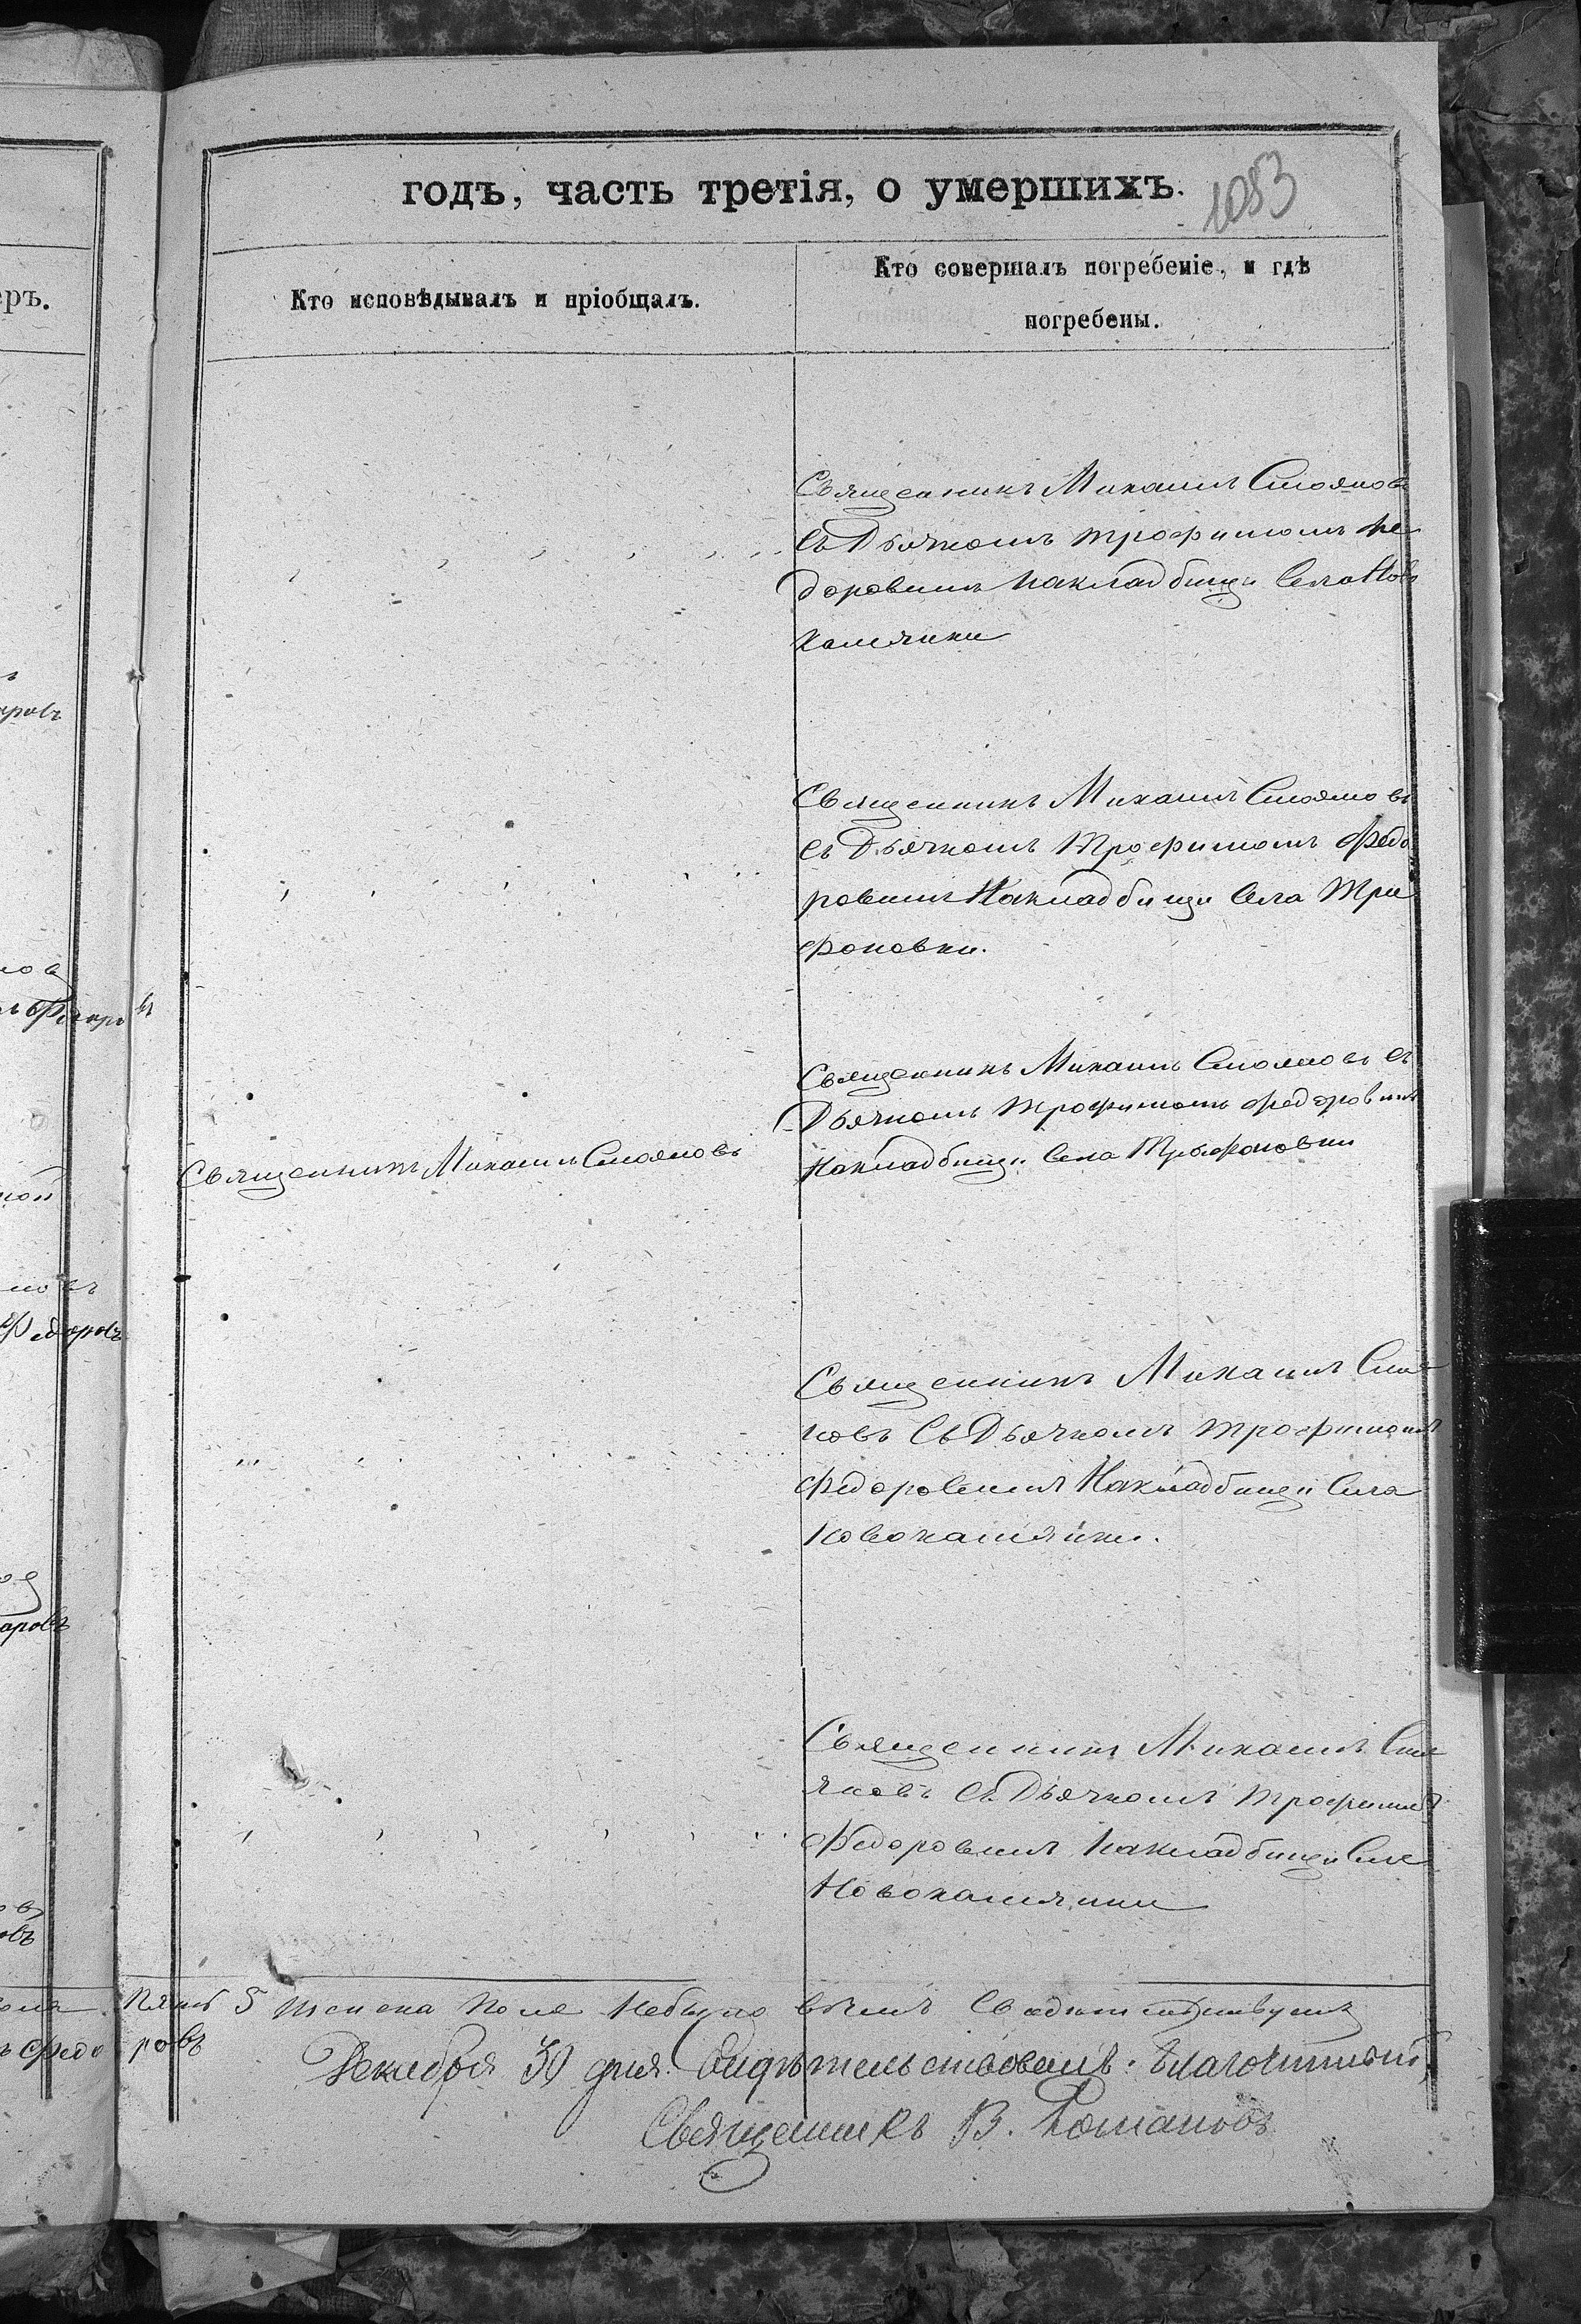 годъ, часть третія, о умершихъ.
1053
Кто исповѣдывалъ и пріобщалъ.
Кто совершалъ погребеніе, и гдѣ
погребены.
еръ.
Священникъ Михаилъ Стояновъ
съ Дьячкомъ Трофимомъ Фе
доровымъ накладбищи Села Ново
камянки
Священникъ Михаилъ Стояновъ
съ Дьячкомъ Трофимомъ Федо
ровымъ Накладбищи Села Три
фоновки.
Священникъ Михаилъ Стояновъ
Священникъ Михаилъ Стояновъ съ
Дьячкомъ Трофимомъ Федоровымъ
Накладбищи Села Трифоновки
Священникъ Михаилъ Стоя
новъ Съ Дьячкомъ Трофимомъ
Федоровымъ Накладбищи Села
Новокамянки.
Священникъ Михаилъ Сто
яновъ съ Дьячкомъ Трофимомъ
Федоровымъ накладбищи Села
Новокамянки
Пять 5 женска пола Небыло вчемъ Свидетельствуемъ
Федоровъ
Декабря 30 дня. Свидѣтельствовалъ: Благочинный,
Священникъ В. Романовъ